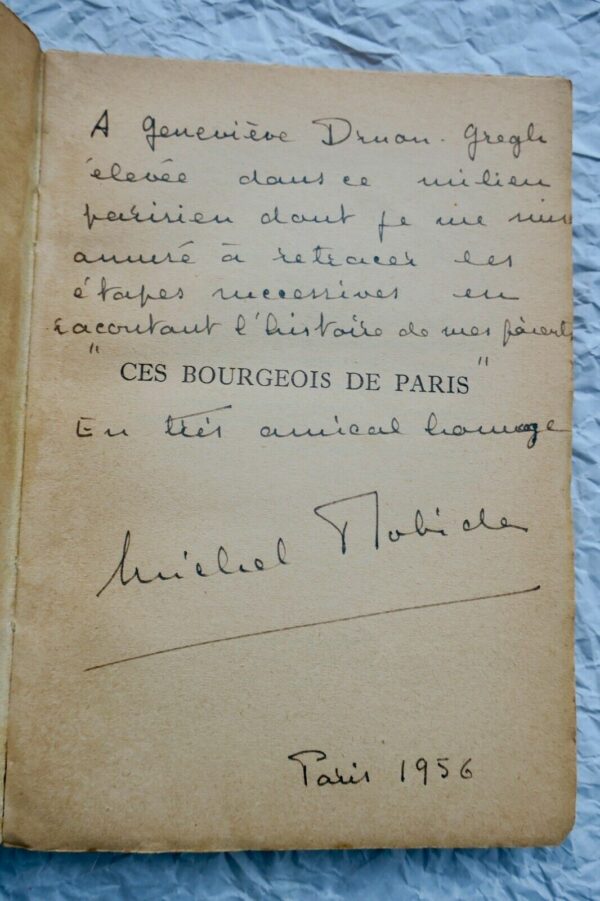 A Geneviève Druon-Gregh
élevée dans ce milieu
parisien dont je me suis
amusé à retracer les
étapes successives en
racontant l'histoire de mes parents
" CES BOURGEOIS DE PARIS "
En très amical hommage
Michel Robida
Paris 1956